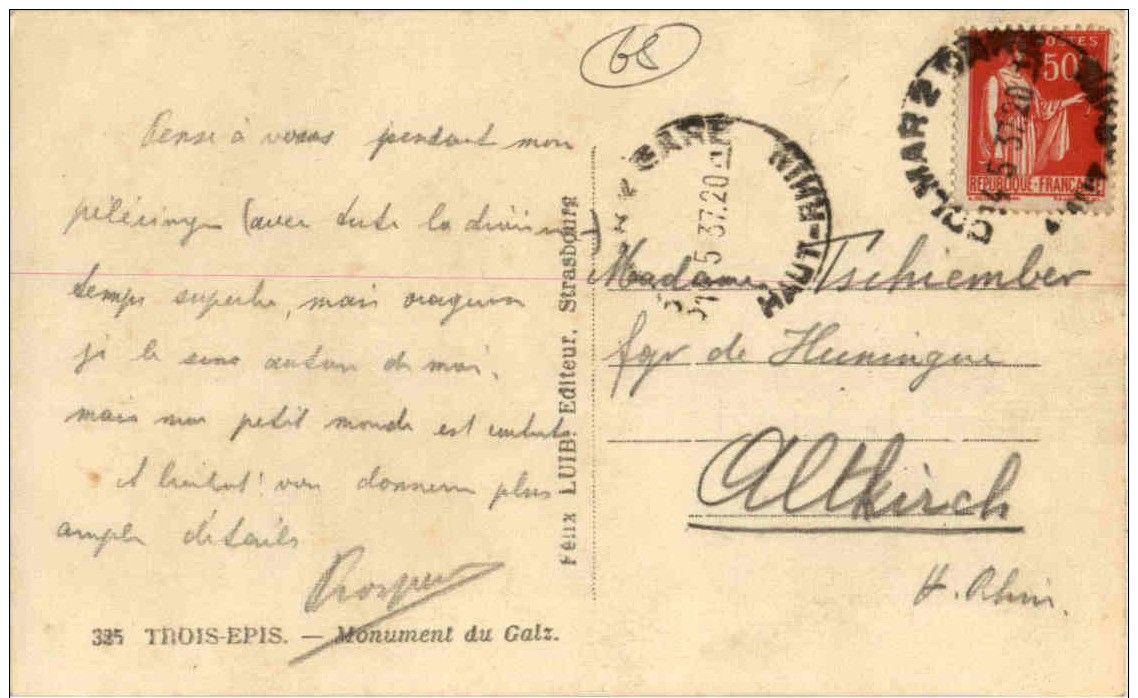 68
Pense à vous pendant mon
(avec toute la
temps superbe, mais orageux
je le sens autour de moi,
mais mon petit monde est content
A bientôt! vous donnerai plus
ample détails
Prosper
335 TROIS-EPIS. — Monument du Galz.
Félix LUIB, Editeur, Strasbourg
GARE
5 37.20
HAUT-RHIN
COLMAR 2
5 37.20
POSTES
50
REPUBLIQUE-FRANCAISE
Madame Tschiember
fgr de Huningue
Altkirch
H. Rhin.